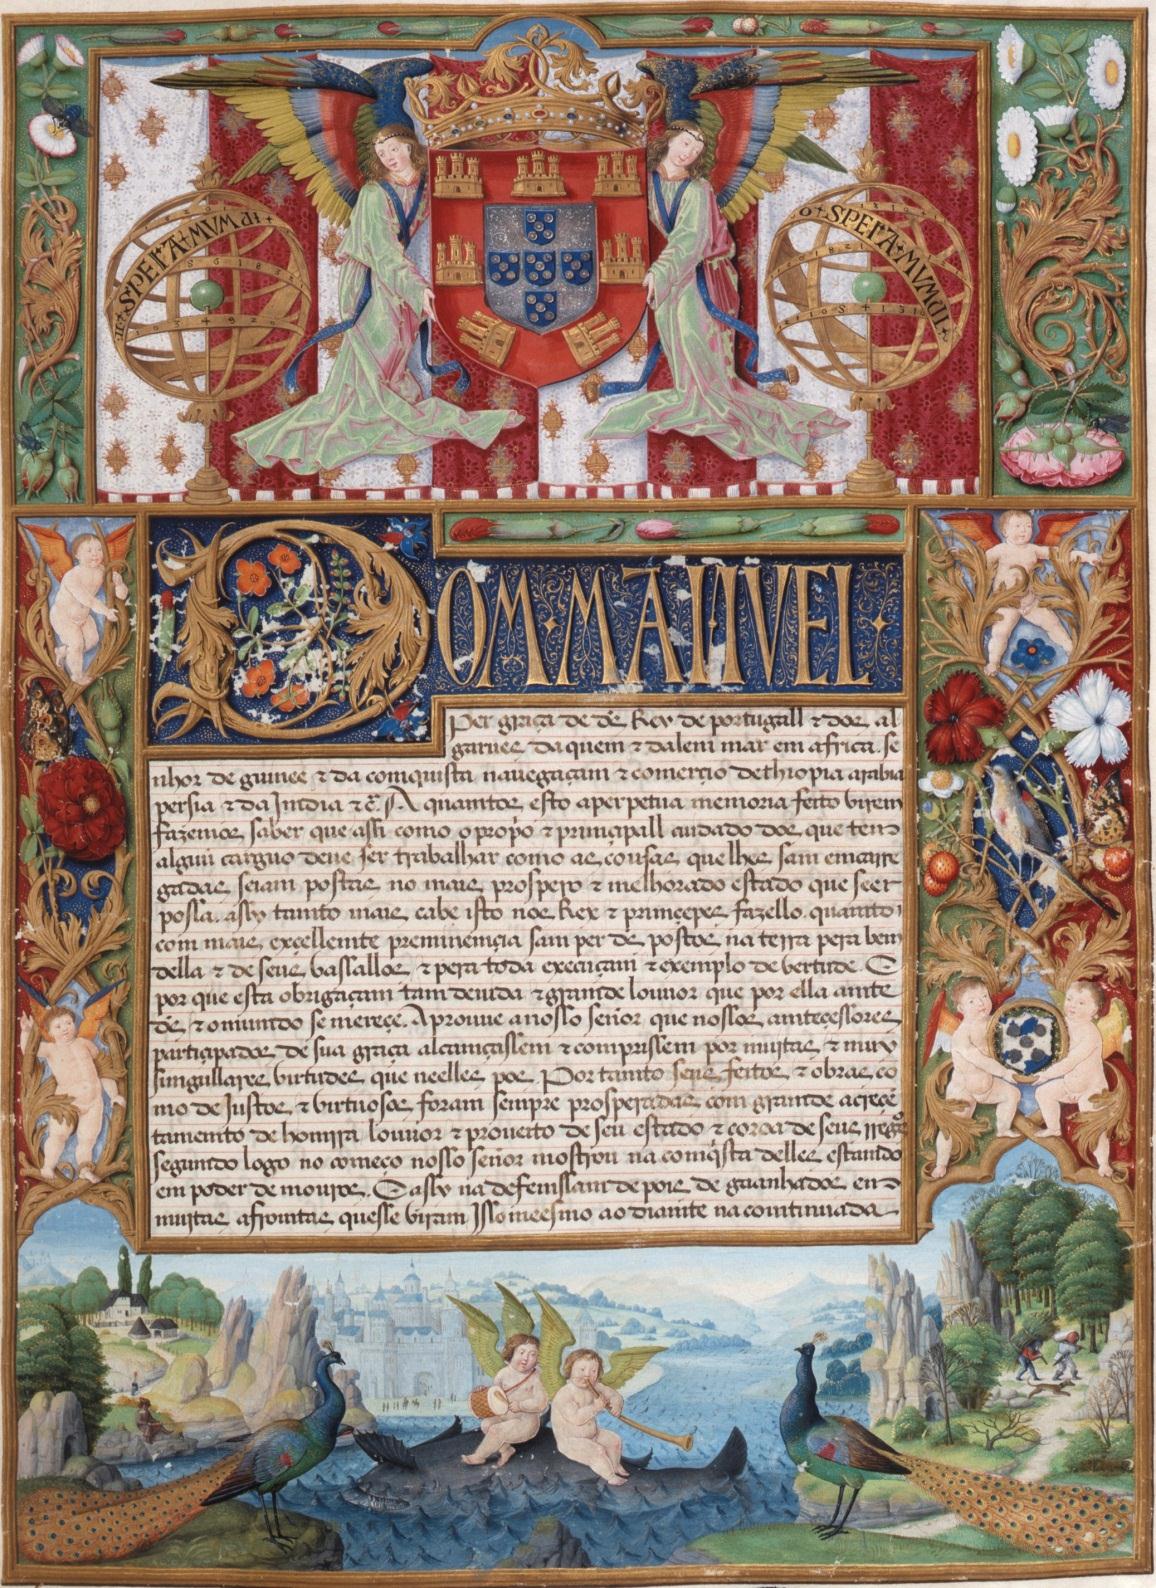 SPERA MVMDI
SPERA MVMDI
DOM MANVEL
Per graça de ds Rey de portugall ⁊ dos al
garues daquem ⁊ dalem mar em africa. se
nhor de guinee ⁊ da comquista nauegaçam ⁊ comerçio dethiopia arabia
persia ⁊ da Jmdia ⁊ c̃. A quamtos esto aperpetua memoria feito virem
fazemos saber que assi como o propo ⁊ primçipall cuidado dos que tem
alguũ carguo deue ser trabalhar como as cousas que lhes sam emcarre
gadas seiam postas no mais prospero ⁊ melhorado estado que seer
possa. assy tamto mais cabe isto nos Rex ⁊ primçepes fazello. quamto
com mais excellemte preminemçia sam per ds postos na terra pera bem
della ⁊ de seus vassallos ⁊ pera toda execuçam ⁊ exemplo de vertude. E
por que esta obrigaçam tam deuida ⁊ gramde louuor que por ella amte
ds ⁊ o mumdo se mereçe. Aprouue a nosso señor que nossos amteçessores
partiçipados de sua graça alcamçassem ⁊ comprissem por muitas ⁊ muy
simgullares virtudes que neelles pos Por tamto seus feitos ⁊ obras co
mo de Justos ⁊ virtuosos foram sempre prosperadas com gramde acreçẽ
tamemto de homrra louuor ⁊ proueito de seu estado ⁊ coroa de seus rregos
segumdo logo no começo nosso señor mostrou na comqista delles estamdo
em poder de mouros. E assy na defemssam depois de guanhados em
muitas afromtas quesse viram Jsso meesmo ao diamte na comtinuada